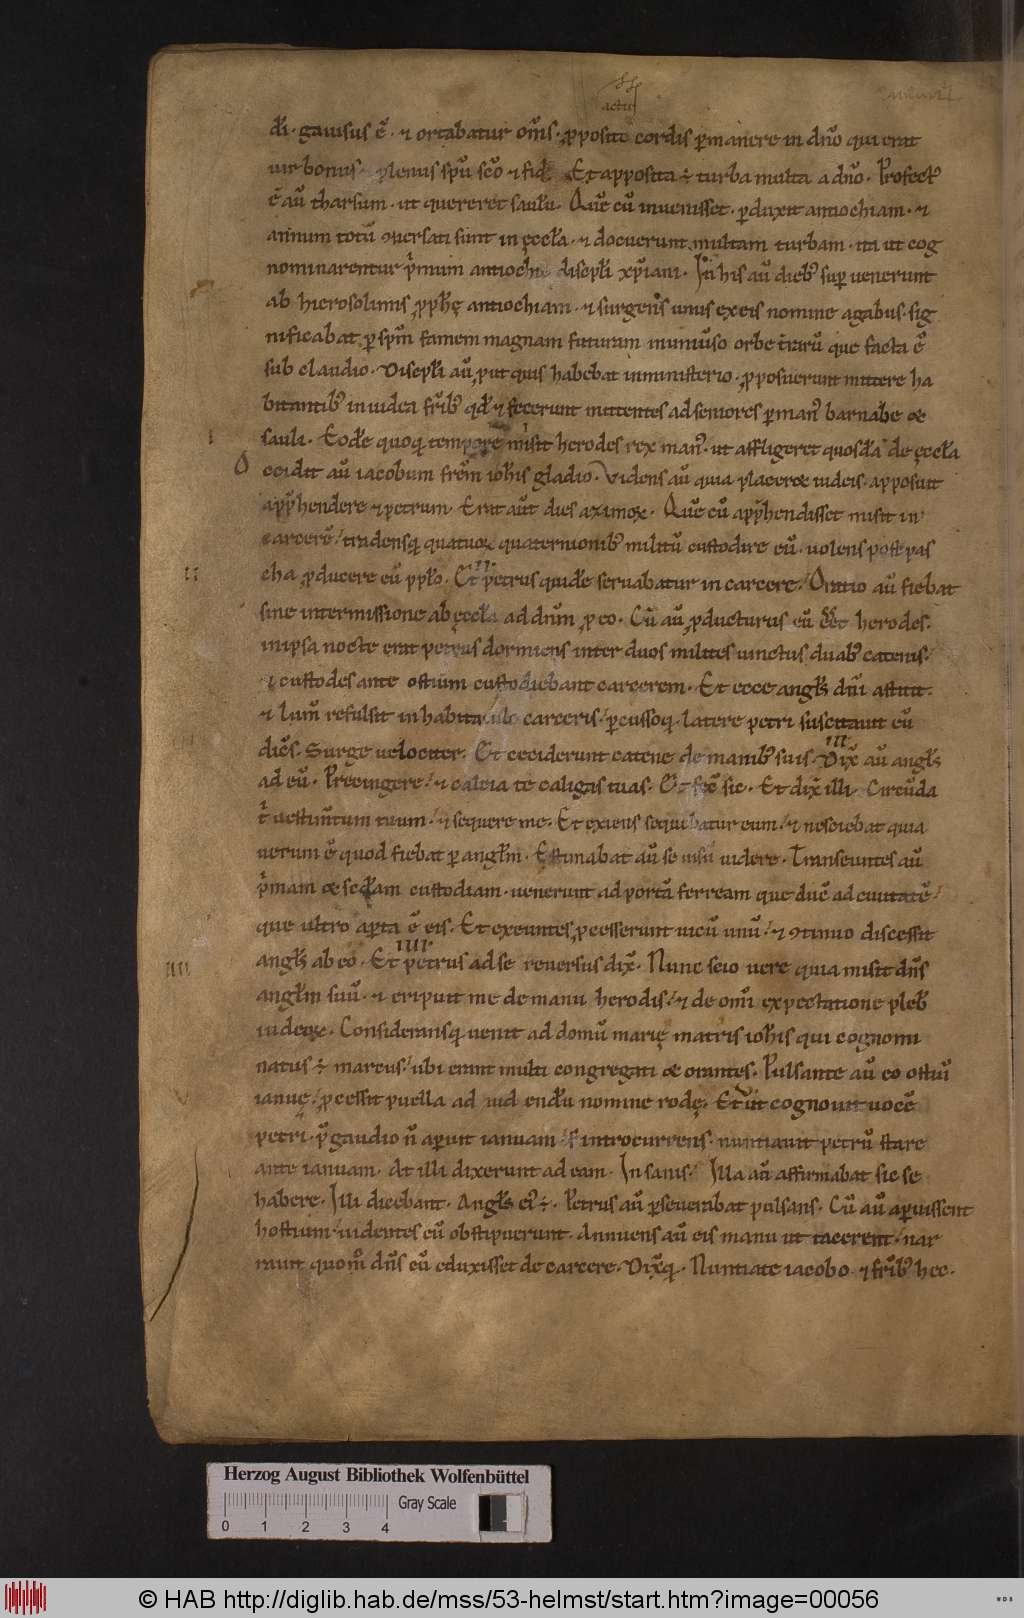 actus
dī· gauisus ē· ⁊ ortabatur om̄s· ꝓposito cordis ꝑmanere in dn̄o qui erat
uir bonus· plenus spū scō ⁊ fide Et apposita ÷ turba multa a dn̄o· Profectꝰ
ē aū tharsum· ut quereret saulū· Quē cū inuenisset· ꝑduxit antiochiam· ⁊
annum totū ꝯuersati sunt in ęccła· ⁊ docuerunt multam turbam· ita ut cog
nominarentur p̄mum antiochie discipłi xp̄iani· In his aū diebꝰ suꝑuenerunt
ab hierosolimis ꝓphę antiochiam· ⁊ surgens unus ex eis nomine agabus· sig
nificabat ꝑ sp̄m famem magnam futuram in uniūso orbe t̄rarū que facta ē
sub claudio· Discipłi aū ꝓut quis habebat in ministerio· ꝓposuerunt mittere ha
bitantibꝰ in iudea fr̄ibꝰ qd̄ ⁊ fecerunt mittentes ad seniores ꝑ manꝰ barnabe &
sauli· Eodē quoq; tempore misit herodes rex manꝰ· ut affligeret quosdā de ęccła
O ccidit aū iacobum fr̄em ioh̄is gladio· Videns aū quia placer& iudeis· apposuit
app̄hendere ⁊ petrum· Erat aūt dies azimoꝝ· Quē cū app̄hendisset misit in
carcerē/ tradensq; quatuor quaternionibꝰ militū custodire eū· uolens post pas
cha ꝓducere eū ppło· Et petrus quidē seruabatur in carcere/ Oratio aū fiebat
sine intermissione ab ęccła ad dn̄m ꝓ eo· Cū aū ꝓducturus eū eēt herodes·
in ipsa nocte erat petrus dormiens inter duos milites uinctus duabꝰ catenis/
⁊ custodes ante ostium custodiebant carcerem· Et ecce angłs dn̄i astitit·
⁊ lum̄ refulsit in habitaculo carceris/ ꝑcussoq; latere petri suscitauit eū
diēs· Surge uelociter· Et ceciderunt catene de manibꝰ suis· Dix̄ aū angłs
ad eū· Precingere/ ⁊ calcia te caligas tuas· Et fec̄ sic· Et dix̄ illi· Circūda
t̄ uestim̄tum tuum·/ ⁊ sequere me· Et exiens sequebatur eum/ ⁊ nesciebat quia
uerum ē quod fiebat ꝑ angłm· Estimabat aū se uisū uidere· Transeuntes aū
p̄mam & secdam custodiam· uenerunt ad portā ferream que ducē ad ciuitatē/
que ultro aꝑta ē eis· Et exeuntes ꝓcesserunt uicū unū/ ⁊ ꝯtinuo discessit
angłs ab eo· Et petrus ad se reuersus dix̄· Nunc scio uere quia misit dn̄s
angłm suū· ⁊ eripuit me de manu herodis/ ⁊ de om̄i expectatione plebꝰ
iudeoꝝ· Consideransq; uenit ad domū marię matris ioh̄is qui cognomi
natus ÷ marcus·/ ubi erant multi congregati & orantes· Pulsante aū eo ostiū
ianuę/ ꝓcessit puella ad uid endū nomine rodę· Et ut cognouit uocē
petri· p̄ gaudio n̄ aꝑuit ianuam/ s; introcurrens· nuntiauit petrū stare
ante ianuam· At illi dixerunt ad eam· Insanis/ Illa aū affirmabat sic se
habere· Illi dicebant· Angłs eiꝰ ÷· Petrus aū ꝑseuerabat pulsans· Cū aū aꝑuissent
hostium/ uidentes eū obstipuerunt· Annuens aū eis manu ut tacerent/ nar
rauit quom̊ dn̄s eū eduxisset de carcere· Dix̄q;· Nuntiate iacobo ⁊ fr̄ibꝰ hec·
Herzog August Bibliothek Wolfenbüttel
Gray Scale
0 1 2 3 4
© HAB http://diglib.hab.de/mss/53-helmst/start.htm?image=00056